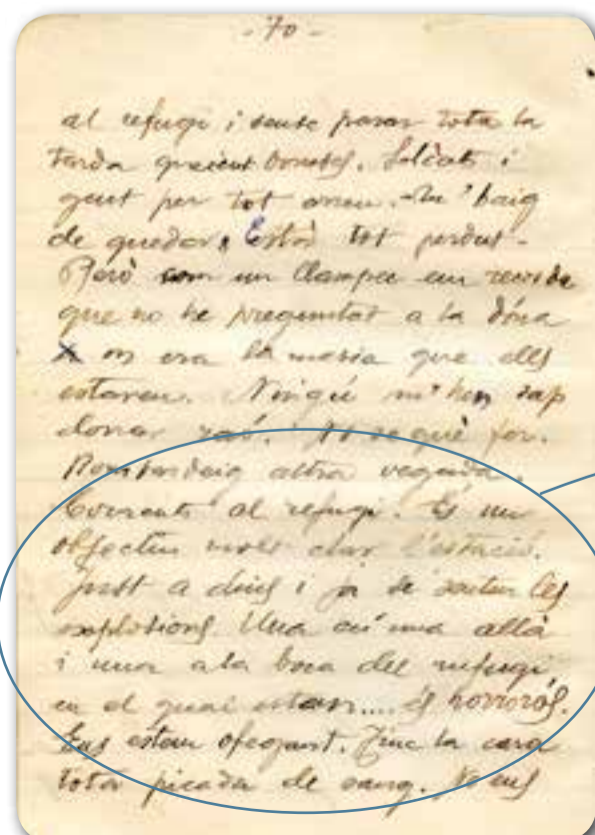 - 70 -
al refugi i sense parar tota la
tarda graient bombes. Soldats i
gent per tot arreu. M'haig
de quedar, Està tot perdut-
Però com un llampec em recorda
que no he preguntat a la dóna
X on era la masia que ells
estaven. Ningú m'hen sap
donar raó. No se què fer.
Bombardeig altra vegada.
Corrents al refugi. És un
objectiu molt clar l'estació.
Just a dins i ja se senten les
explosions. Una aci una allà
i una a la boca del refugi
en el qual estam.... és horrorós.
Ens estem ofegant. Tinc la cara
tota picada de sang. No ens